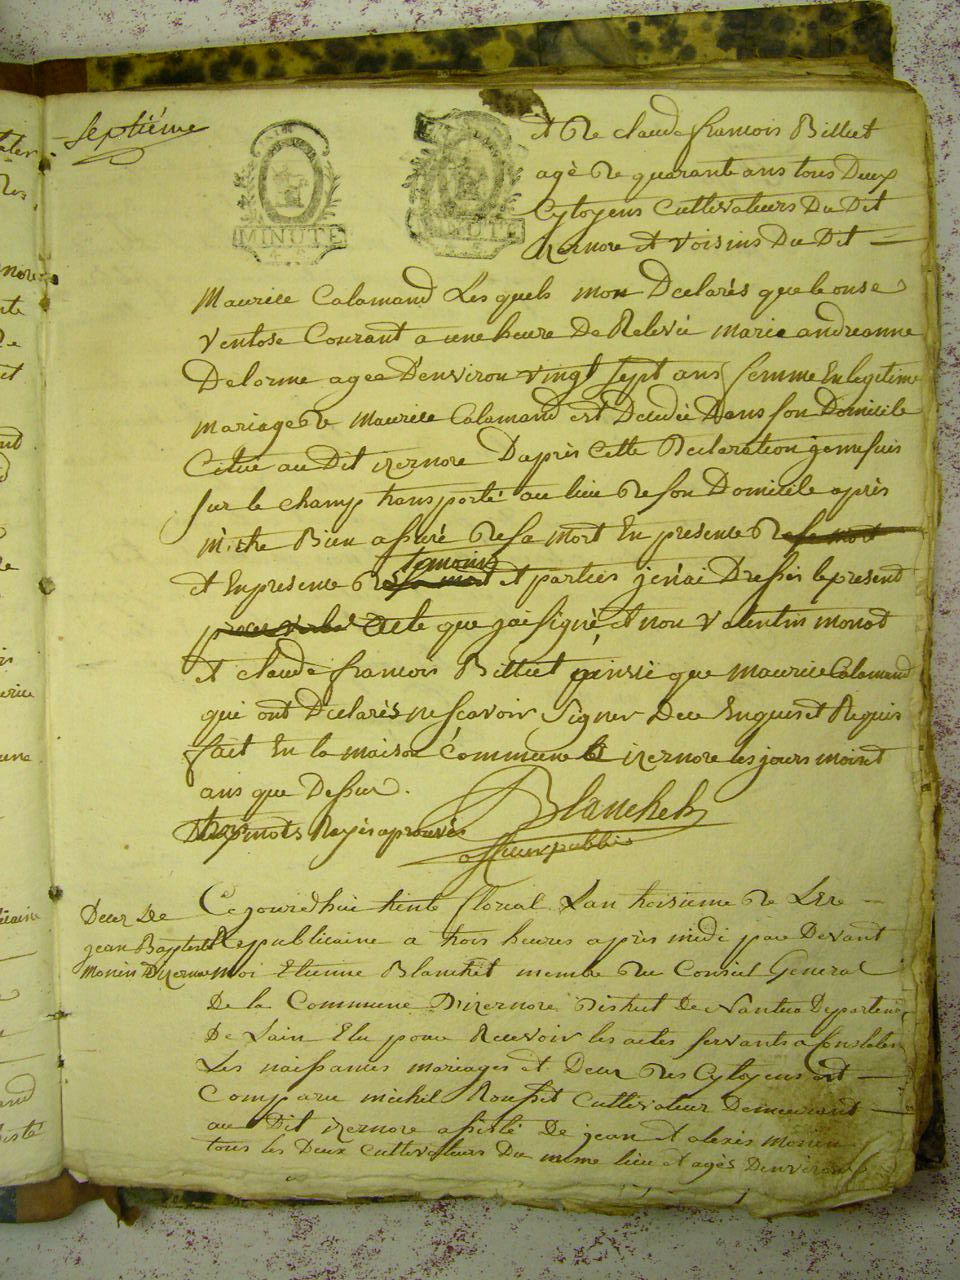 Septième
MINUTE
MINUTE
et de claude francois Billiet
agè de quarante ans tous Deux
Cytoyens Cultivateurs Du Dit
izernore et voisins Du Dit
Maurice Calamand Les quels mon Dclarès que le onse
Ventose Courant a une heure De Relevée marie andreanne
Delorme agee D'environ vingt sept ans femme En legitime
mariage de Maurice Calamand est Decedée Dans son Domicile
Citué au Dit izernore Daprès Cette Declaration je me suis
sur le champ transporté au lieu de son Domicile après
m'etre Bien assuré de sa mort En presence de sa mort
temoins
et En presence de sa mort et parties j'en ai Dressés le present
proces verbal acte que j'ai signé et non Valentin monod
et claude francois Billiet ainsie que maurice Calamand
qui ont Dclarès ne scavoir signer De ce Enquis et Requis
fait En la maison Commune izernore les jours mois et
ans que Dessus.
Blanchet
mots Rayés aprouvés
officier public
Ce jourdhui trente floreal Lan troisieme de L'Ere
Deces De
jean Baptiste
Monin Dizernore
Republicaine a trois heures après midi par Devant
moi Etienne Blanchet membre du Conseil General
De la Commune Dizernore District De Nantua Departem
De Lain Elu pour Recevoir les actes servants a Constater
Les naissances mariages et Deces des Cytoyens ont
Comparu michel Rousset Cultivateur Demeurant
au Dit izernore assisté De jean et alexis monin
tous les Deux cultivateurs Du même lieu et agès Denviron